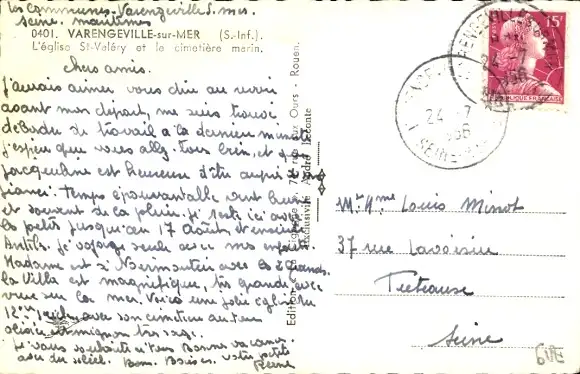 Les Communes - Varengeville s. mer.
Seine maritimes
0401. VARENGEVILLE-sur-MER (S.-Inf.)
L'église St-Valéry et le cimetière marin.
chers amis.
J'aurais aimer vous dire au revoir
avant mon départ, me suis trouvé
débordé de travail à la dernière minute
j'espère que vous allez tous bien, et que
Jacqueline est heureuse d'être auprès
fiancé. Temps épouvantable vent
et souvent de la pluie. Je reste ici avec
les petits jusqu'au 17 Août, et ensuite
je voyage seule avec mes enfants
Madame est à Noirmoutier avec les 2 grands.
la Villa est magnifique, très grande avec
vue sur la mer. Voici une jolie église du
12ème siècle, avec son cimetière
mignon très sage.
je vous souhaite à tous Bonnes vacances
avec du soleil. Bons Baisers. votre petite
Pierre
Edition "La Cigogne", 7 rue aux Ours - Rouen.
Exclusivité André Leconte
15F
REPUBLIQUE FRANÇAISE
24 -7
24 -7
1956
Mr. & Mme Louis Minot
37 rue Lavoisier
Seine